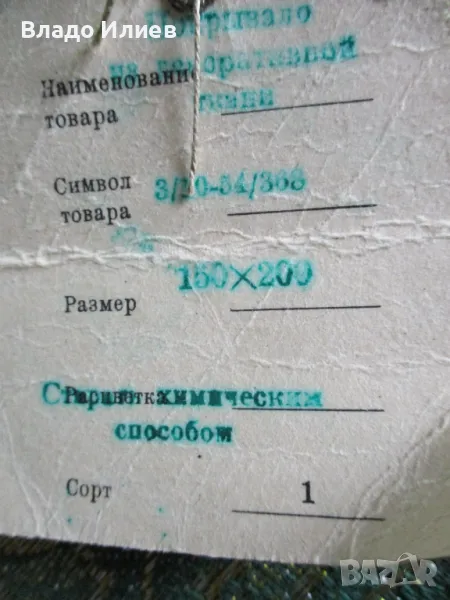 Владо Илиев
Покрывало
Наименование из декоративной
товара ткани
Символ 3/10-54/368
товара
150×200
Размер
химическим
способом
Сорт 1
BAZAR